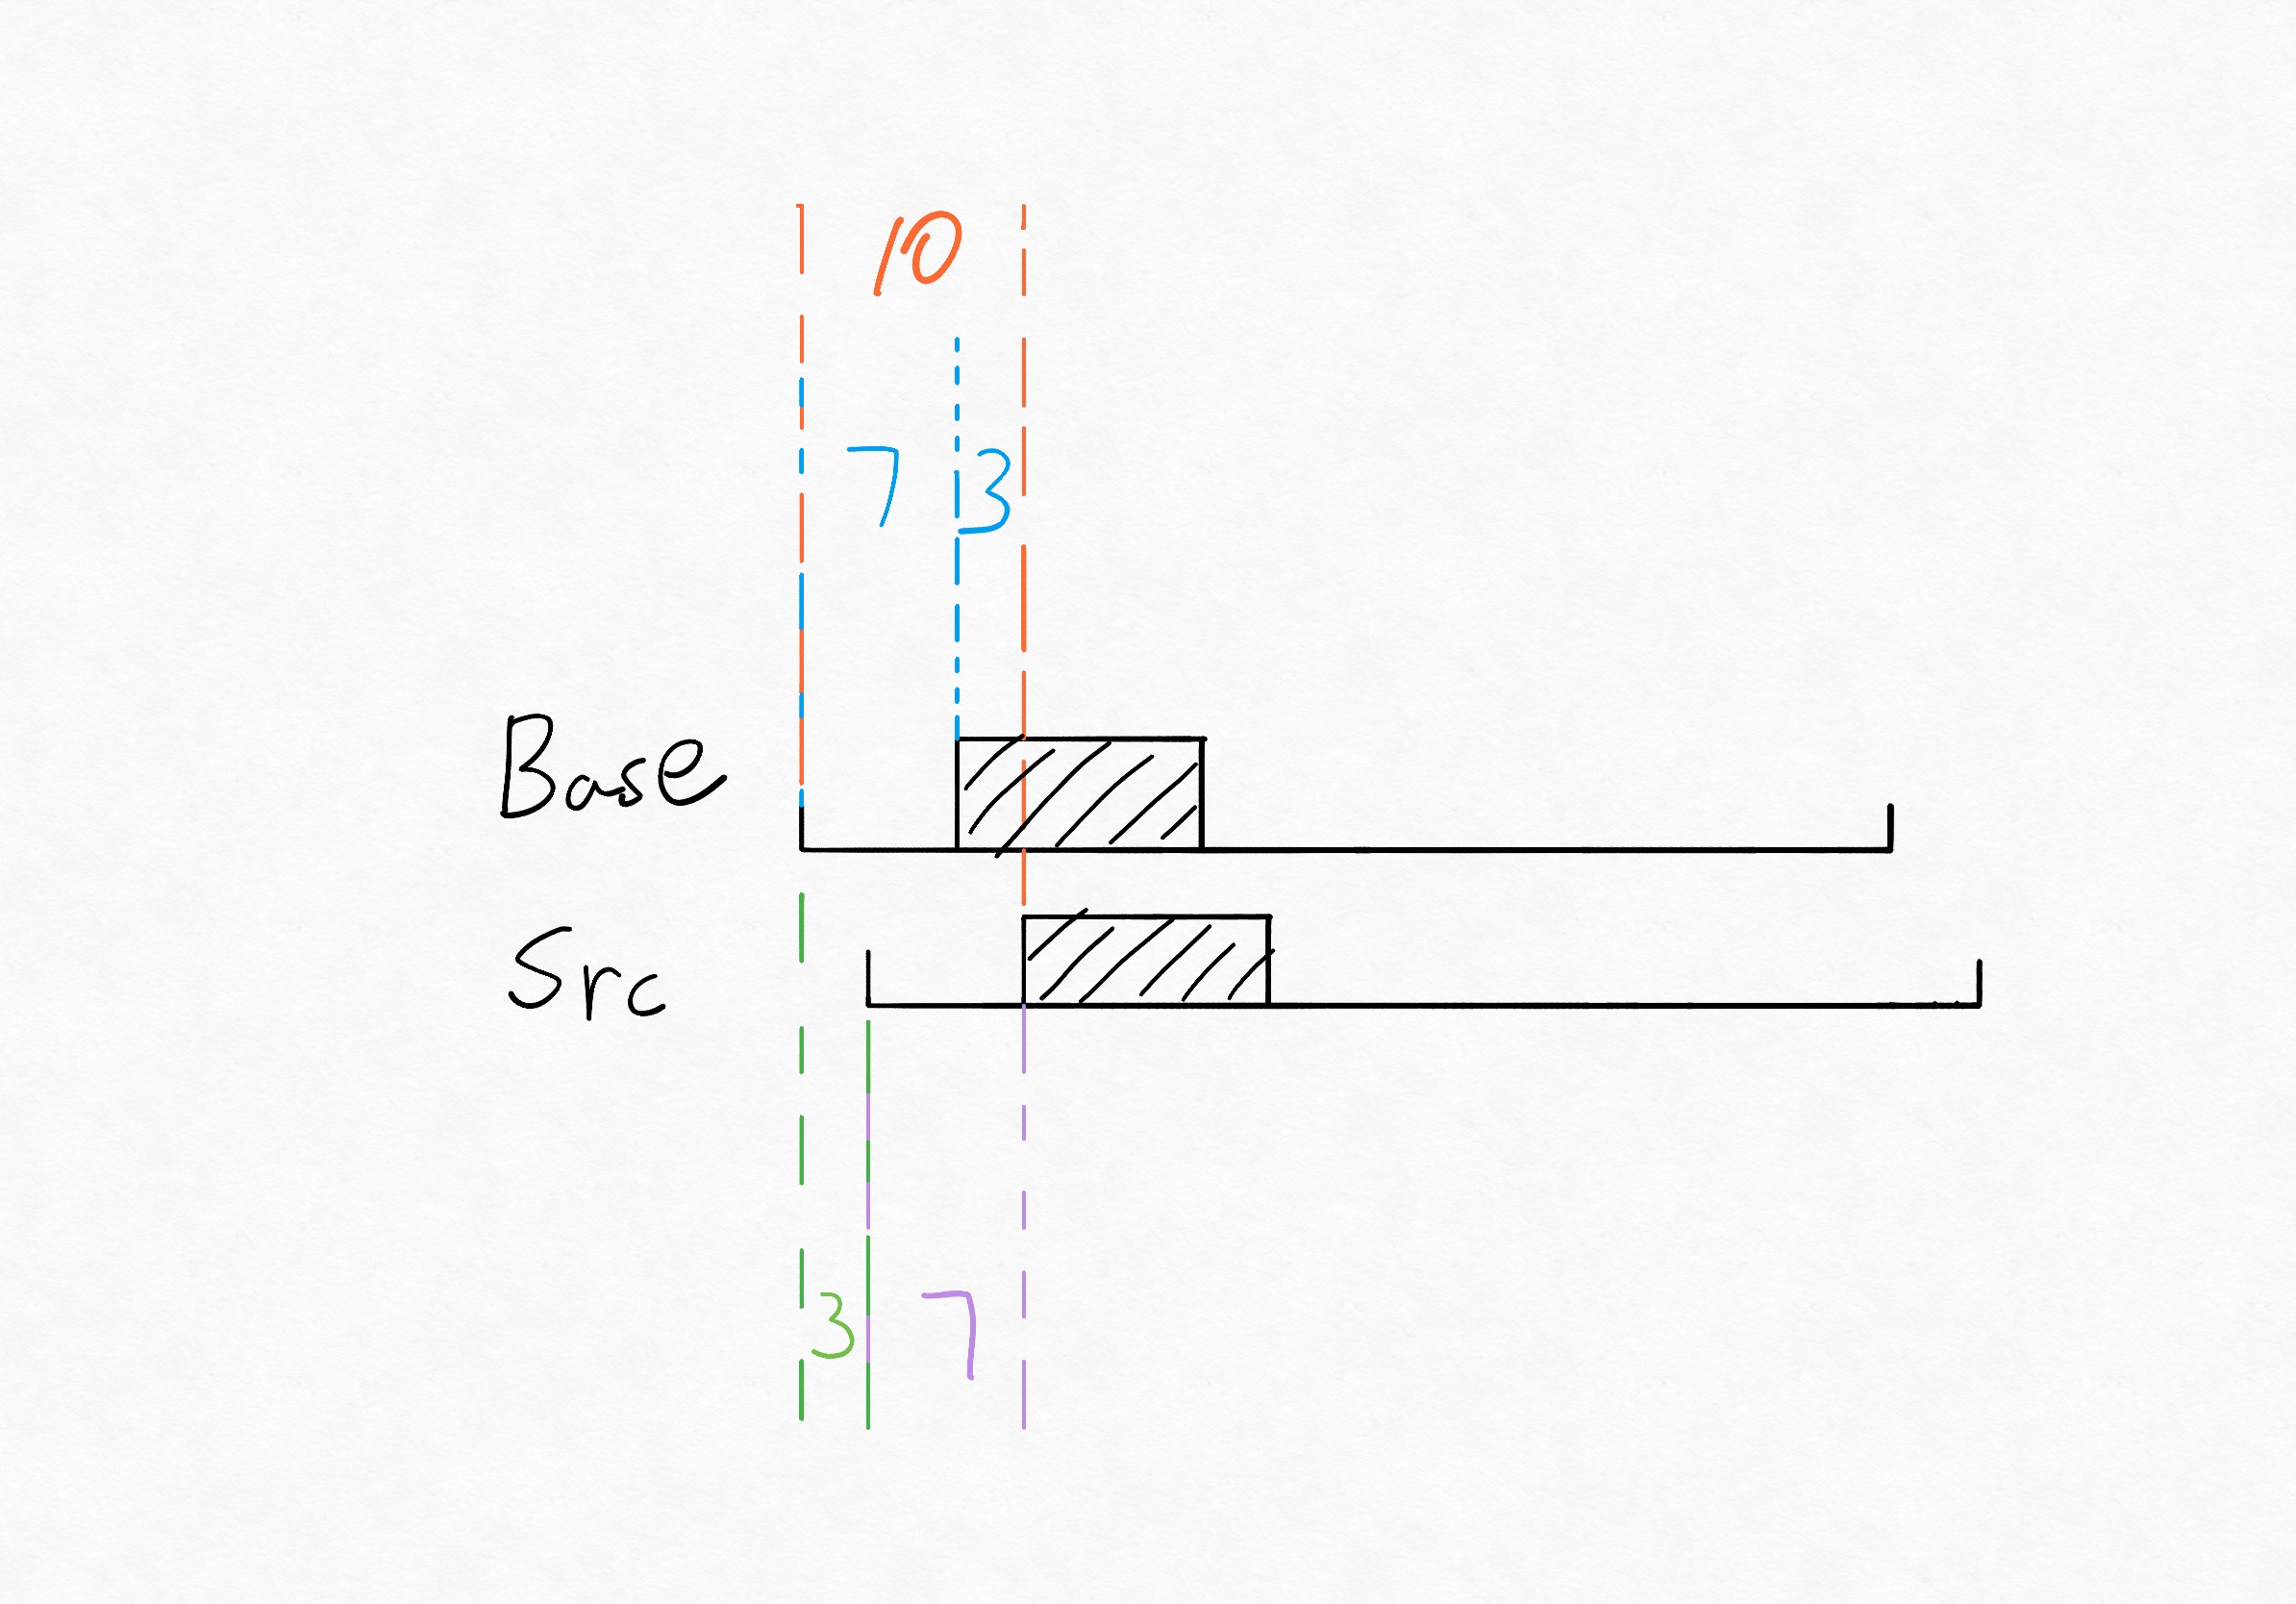 10
7 3
Base
Src
3 7